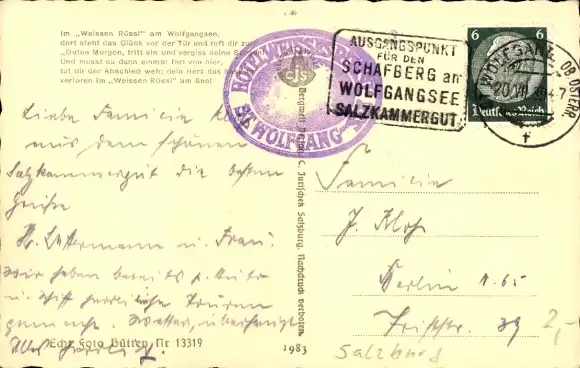 Im „Weissen Rössl" am Wolfgangsee,
dort steht das Glück vor der Tür und ruft dir zu:
„Guten Morgen, tritt ein und vergiss deine Sorgen
Und musst du dann einmal fort von hier,
tut dir der Abschied weh; dein Herz das hast du
verloren im „Weissen Rössl" am See!
HOTEL WEISSES
ST. WOLFGANG
AUSGANGSPUNKT
FÜR DEN
SCHAFBERG am
WOLFGANGSEE
SALZKAMMERGUT
ST WOLFGANG
OB. ÖSTERR
20.VII
6 6
Deutsches Reich
Liebe Familie
Aus dem schönen
Salzkammergut die besten
Grüße
u. Frau.
Wir haben bereits p. Auto
u. Schiff herrliche Touren
gemacht. Wetter, überhaupt
Alles herrlich.
Echt Foto Bütten Nr 13319
1983
C. Jurischek Salzburg. Nachdruck verboten.
Familie
J. Klohs
Berlin N. 65
39
2,-
Salzburg